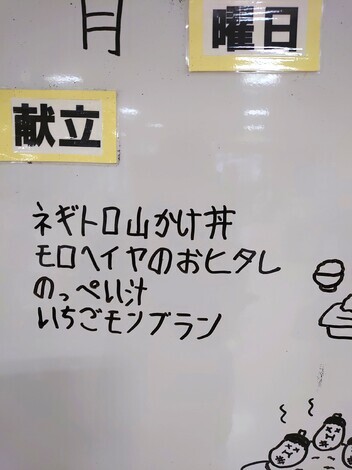 月
曜日
献立
ネギトロ山かけ丼
モロヘイヤのおヒタし
のっぺい汁
いちごモンブラン